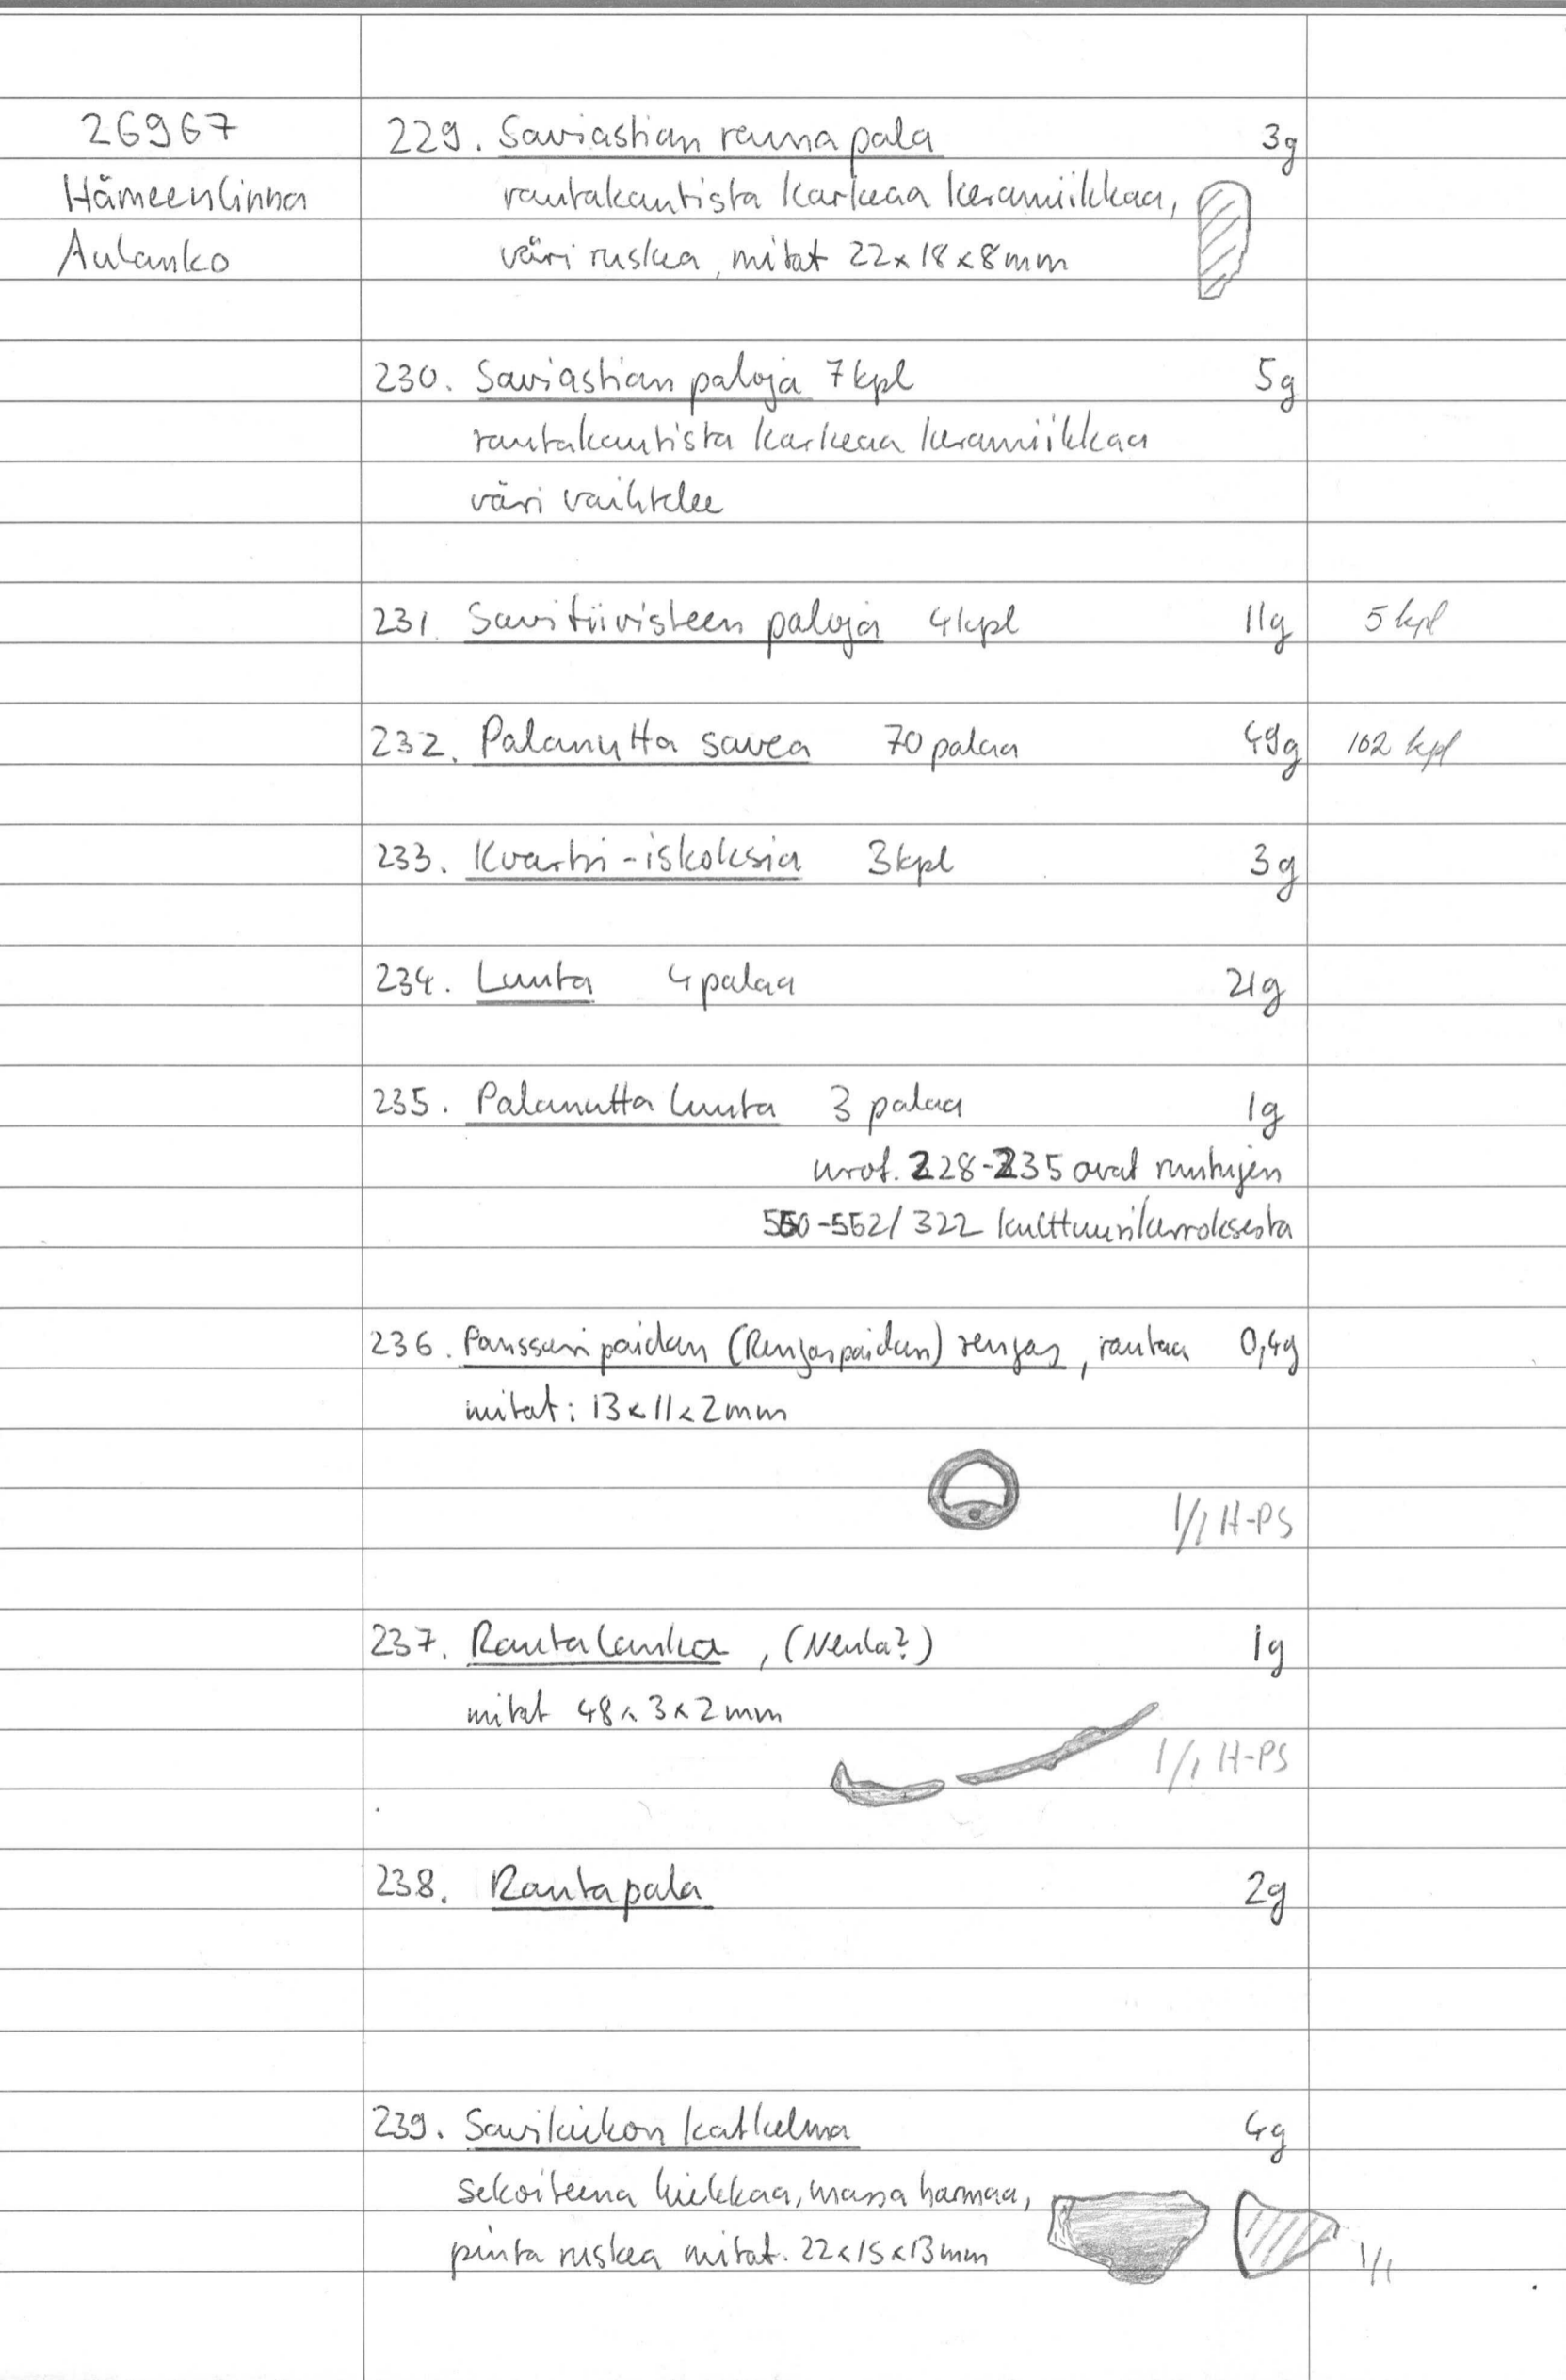 26967
Hämeenlinna
Aulanko
229. Saviastian reunapala 3g
rautakautista karkeaa keramiikkaa,
väri ruskea, mitat 22x18x8mm
230. Saviastian paloja 7kpl 5g
rautakautista karkeaa keramiikkaa
väri vaihtelee
231. Savitiivisteen paloja 4kpl 11g 5 kpl
232. Palanutta savea 70 palaa 49g 102 kpl
233. Kvartsi-iskoksia 3kpl 3g
234. Luuta 4 palaa 21g
235. Palanutta luuta 3 palaa 1g
nrot. 228-235 ovat ruutujen
550-552/322 kulttuurikerroksesta
236. Panssaripaidan (Rengaspaidan) rengas, rautaa 0,4g
mitat: 13x11x2mm
1/1 H-PS
237. Rautalanka, (Neula?) 1g
mitat 48x3x2mm
1/1 H-PS
238. Rautapala 2g
239. Savikiekon katkelma 4g
sekoiteena hiekkaa, massa harmaa,
pinta ruskea mitat. 22x15x13mm
1/1